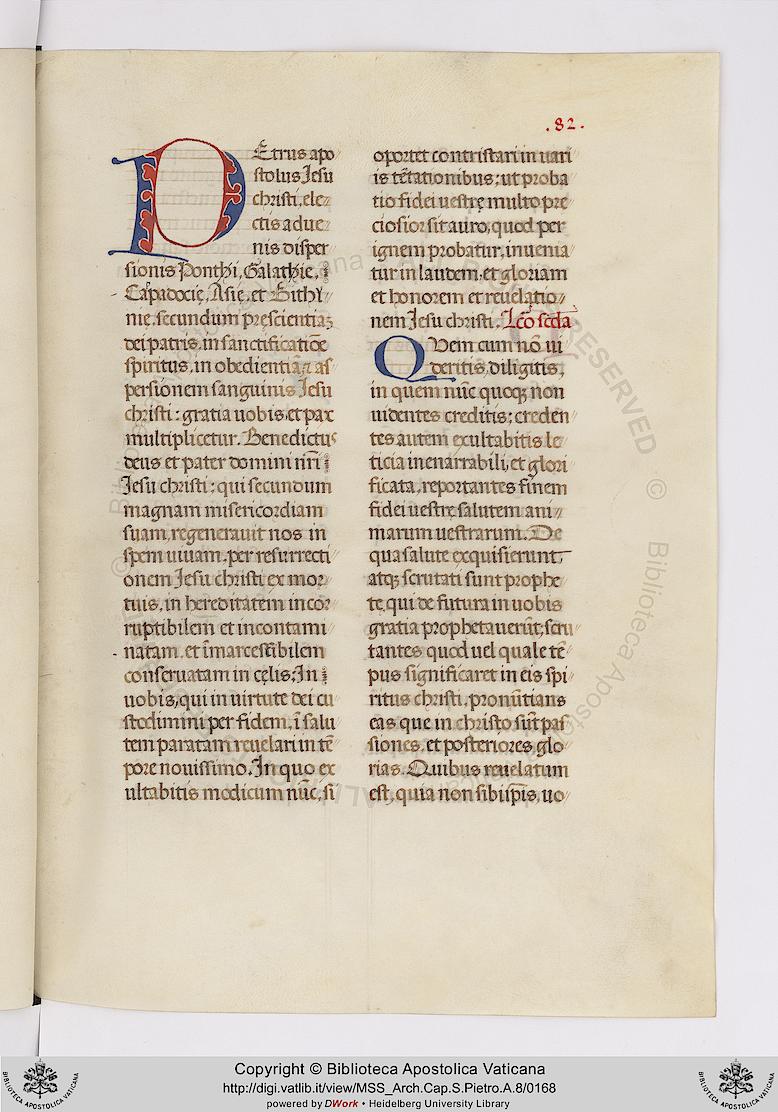 .82.
PEtrus apo
stolus Jesu
christi, ele
ctis adue
nis disper
sionis Ponthi, Galathie,
Cappadocię, Asię, et Bithi
nie, secundum pręscientiaʒ
dei patris, in sanctificatiōe
spiritus, in obedientiā, ⁊ as
persionem sanguinis Jesu
christi: gratia uobis et pax
multiplicetur. Benedictus
deus et pater domini nr̄i
Jesu christi: qui secundum
magnam misericordiam
suam, regenerauit nos in
spem uiuam, per resurrecti
onem Jesu christi ex mor
tuis, in hereditatem incor
ruptibilem et incontami
natam, et īmarcescibilem
conseruatam in cęlis: In
uobis, qui in uirtute dei cu
stodimini per fidem, ī salu
tem paratam reuelari in tē
pore nouissimo. In quo ex
ultabitis modicum nūc, si
oportet contristari in uari
is tētationibus: ut proba
tio fidei uestrę multo pre
ciosior sit auro, quod per
ignem probatur, inuenia
tur in laudem, et gloriam
et honorem et reuelatio
nem Jesu christi. Lc̄o scđa
QVem cum nō ui
deritis, diligitis,
in quem nūc quoqꝫ non
uidentes creditis: creden
tes autem exultabitis le
ticia inenarrabili, et glori
ficata, reportantes finem
fidei uestrę salutem ani
marum uestrarum. De
qua salute exquisierunt,
atqꝫ scrutati sunt prophe
te, qui de futura in uobis
gratia prophetauerūt, scru
tantes quod uel quale tē
pus significaret in eis spi
ritus christi, pronūtians
eas que in christo sūt pas
siones, et posteriores glo
rias. Quibus reuelatum
est, quia non sibi ip̄is, uo
Copyright © Biblioteca Apostolica Vaticana
http://digi.vatlib.it/view/MSS_Arch.Cap.S.Pietro.A.8/0168
powered by DWork • Heidelberg University Library
BIBLIOTECA APOSTOLICA VATICANA
BIBLIOTECA APOSTOLICA VATICANA